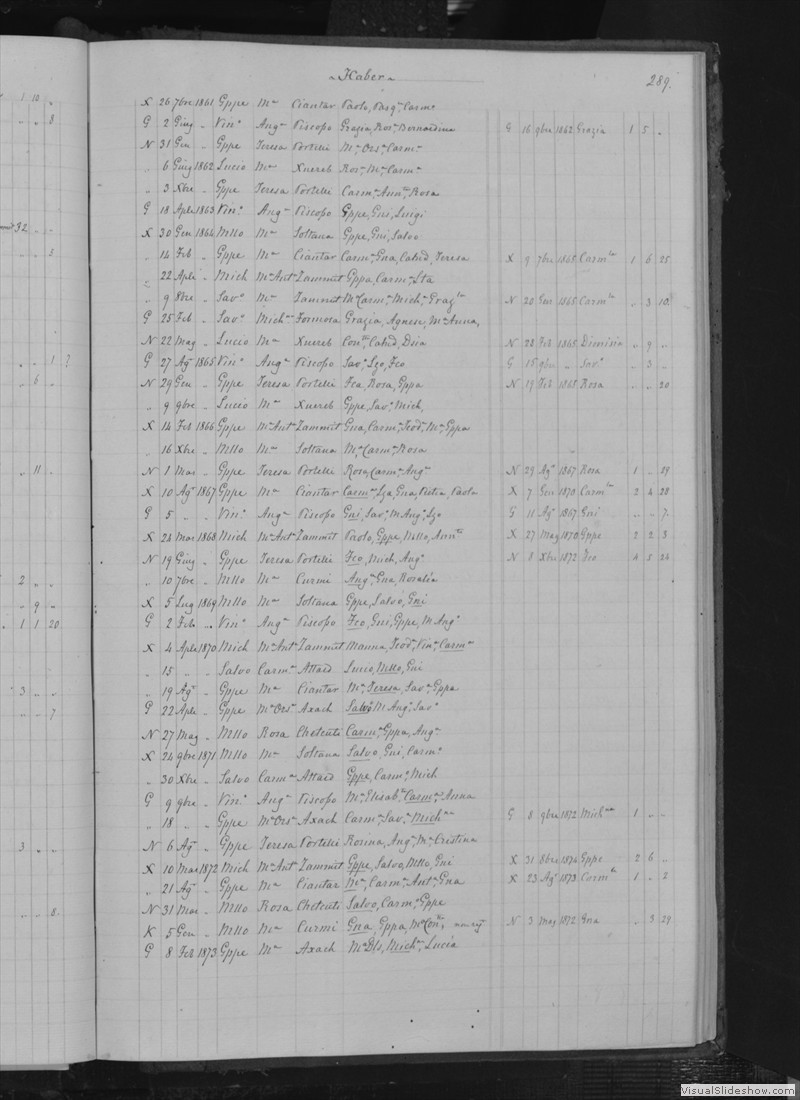 Haber
289.
X 26 7bre 1861 Gppe Ma Ciantar Paolo, Pasq, Carme
G 2 Giug „ Vin. Anga Piscopo Grazia, Rosa Bernardina G 16 9bre 1862 Grazia 1 5 „
N 31 Gen „ Gppe Teresa Portelli Ma Orsa Carma
„ 6 Giug 1862 Lucio Ma Xuereb Rosa Ma Carma
„ 3 Xbre „ Gppe Teresa Portelli Carma, Rosa
G 18 Aple 1863 Vin. Anga Piscopo Gppe, Gni, Luigi
X 30 Gen 1864 Mllo Ma Soltana Gppe, Gni, Salvo
„ 14 Feb „ Gppe Ma Ciantar Carma, Gna, Teresa X 9 7bre 1865 Carmla 1 6 25
„ 22 Aple „ Mich Ma Anta Zammit Gppa, Carma
„ 9 8bre „ Savo Ma Zammit Ma Carma, Micha N 20 Gen 1865 Carmla „ 3 10
G 25 Feb „ Savo Micha Formosa Grazia, Agnese, Ma Anna,
N 22 Mag „ Lucio Ma Xuereb N 28 Feb 1865 Dionisia „ 9 „
G 27 Ago 1865 Vin. Anga Piscopo Savo, Fco G 15 9bre „ Savo „ 3 „
N 29 Gen „ Gppe Teresa Portelli Fca, Rosa, Gppa N 19 Feb 1865 Rosa „ „ 20
„ 9 9bre „ Lucio Ma Xuereb Gppe, Savo, Mich,
X 14 Feb 1866 Gppe Ma Anta Zammit Gna, Carma, Teoda, Ma, Gppa
„ 16 Xbre „ Mllo Ma Soltana Ma, Carma, Rosa
N 1 Mar „ Gppe Teresa Portelli Rosa, Carma, Anga N 29 Ago 1867 Rosa 1 „ 29
X 10 Ago 1867 Gppe Ma Ciantar Carma, Gna, Paola X 7 Gen 1870 Carmla 2 4 28
G 5 „ „ Vin. Anga Piscopo Gni, Savo, M Ango G 11 Ago 1867 Gni „ „ 7
X 24 Mar 1868 Mich Ma Anta Zammit Paolo, Gppe, Mllo X 27 Mag 1870 Gppe 2 2 3
N 19 Giug „ Gppe Teresa Portelli Fco, Mich, Ango N 1 Xbre 1872 Fco 4 5
„ 10 7bre „ Mllo Ma Curmi Anga, Gna, Rosalia
X 5 Lug 1869 Mllo Ma Soltana Gppe, Salvo, Gni
G 2 Feb „ Vin. Anga Piscopo Fco, Gni, Gppe, M Ango
X 4 Aple 1870 Mich Ma Anta Zammit Manna, Teoda, Vina, Carma
„ 15 „ „ Salvo Carma Attard Lucio, Mllo, Gni
„ 19 Ago „ Gppe Ma Ciantar Ma, Teresa, Sava, Gppa
G 22 Aple „ Gppe Ma Orsa Axach Salvo, M Ango, Savo
N 27 Mag „ Mllo Rosa Chetcuti Carma, Gppa, Anga
X 24 9bre 1871 Mllo Ma Soltana Salvo, Gni, Carmo
„ 30 Xbre „ Salvo Carma Attard Gppe, Carmo, Mich
G 9 9bre „ Vin. Anga Piscopo Ma Elisaba, Carma, Anna
„ 18 „ „ Gppe Ma Orsa Axach Carma, Sava, Micha G 8 9bre 1872 Micha 1 „ „
N 6 Ago „ Gppe Teresa Portelli Rosina, Anga, Ma Cristina
X 10 Mar 1872 Mich Ma Anta Zammit Gppe, Salvo, Mllo, Gni X 31 8bre 1874 Gppe 2 6 „
„ 21 Ago „ Gppe Ma Ciantar Ma, Carma, Anta, Gna X 23 Ago 1873 Carmla 1 „ 2
N 31 Mar „ Mllo Rosa Chetcuti Salvo, Carmo, Gppe
X 5 Gen „ Mllo Ma Curmi Gna, Gppa, Ma N 3 Mag 1872 Gna „ 3 29
G 8 Feb 1873 Gppe Ma Axach Micha, Lucia
VisualSlideshow.com